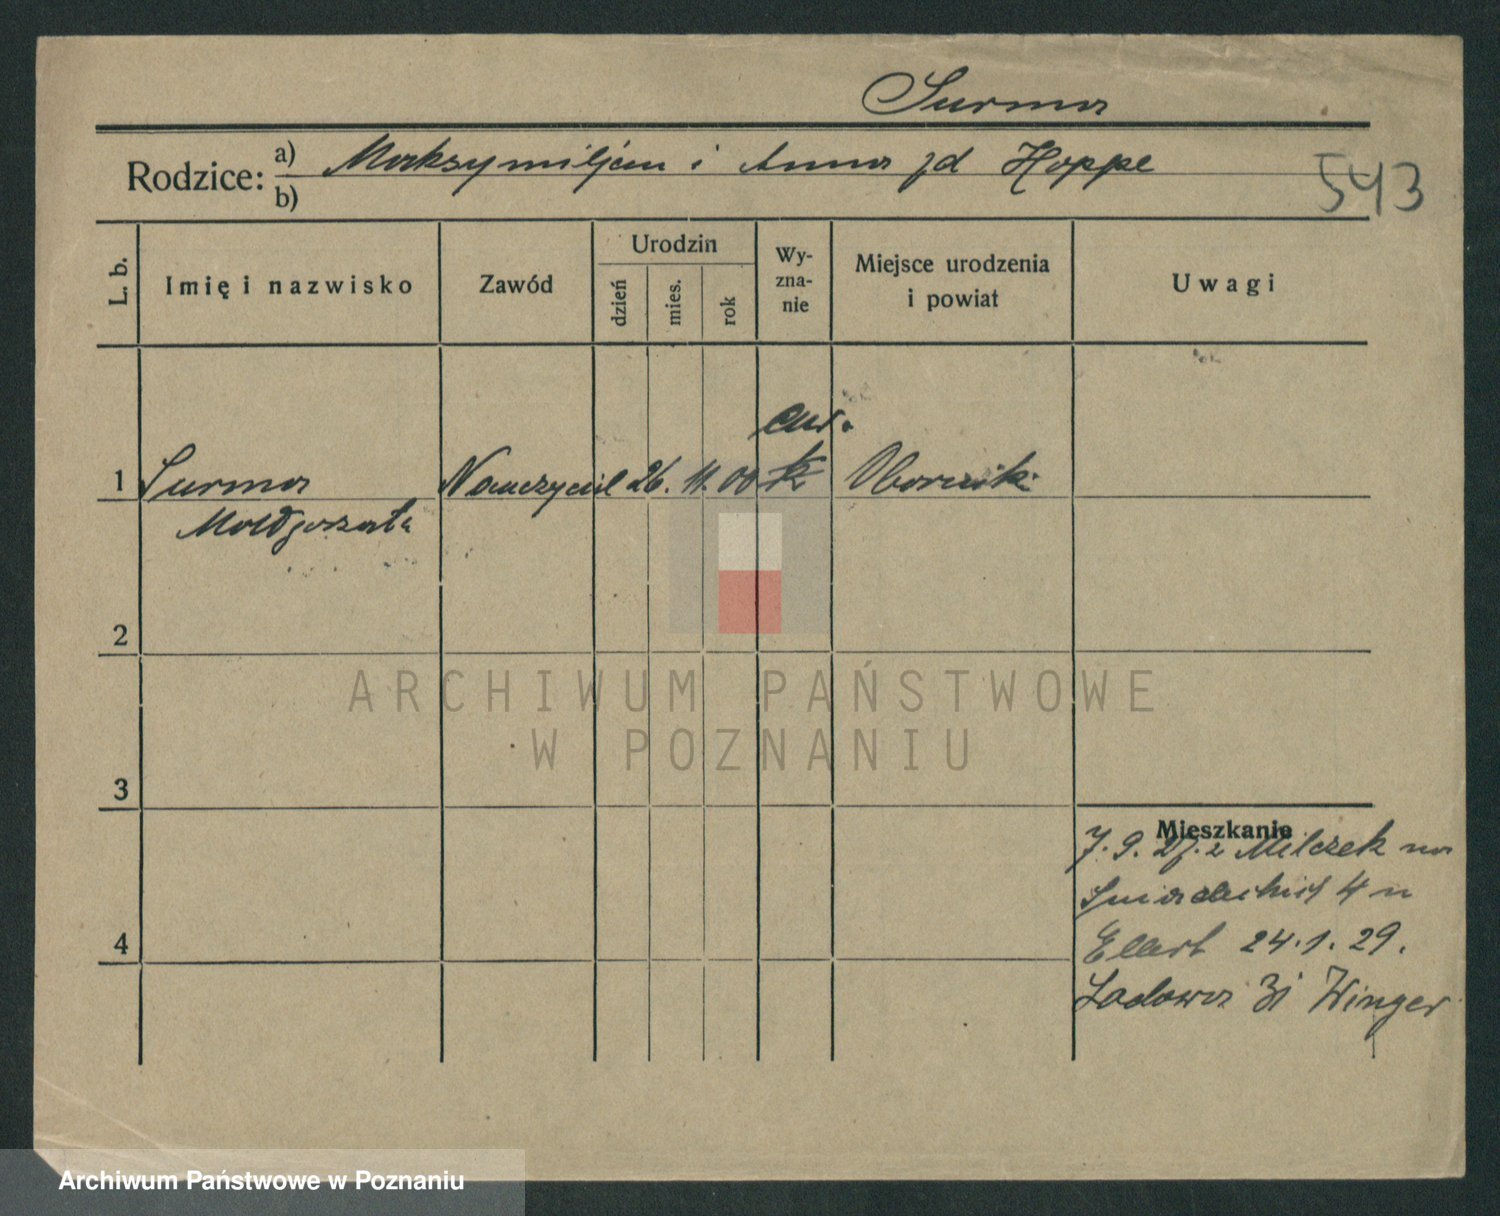 Surma
Rodzice: a) Maksymiljan i Anna zd Hoppe
b)
543
L. b.
Imię i nazwisko
Zawód
Urodzin
dzień
mies.
rok
Wy-
zna-
nie
Miejsce urodzenia
i powiat
Uwagi
ew.
1 Surma Nauczyciel 26. 11. 00 k Oborniki
Małgorzata
2
3
4
Mieszkanie
7. 9. 27. z Milczek na
Śniadeckich 4 u
Ellert 24. 1. 29.
Lodowa 31 Winger
ARCHIWUM PAŃSTWOWE
W POZNANIU
Archiwum Państwowe w Poznaniu